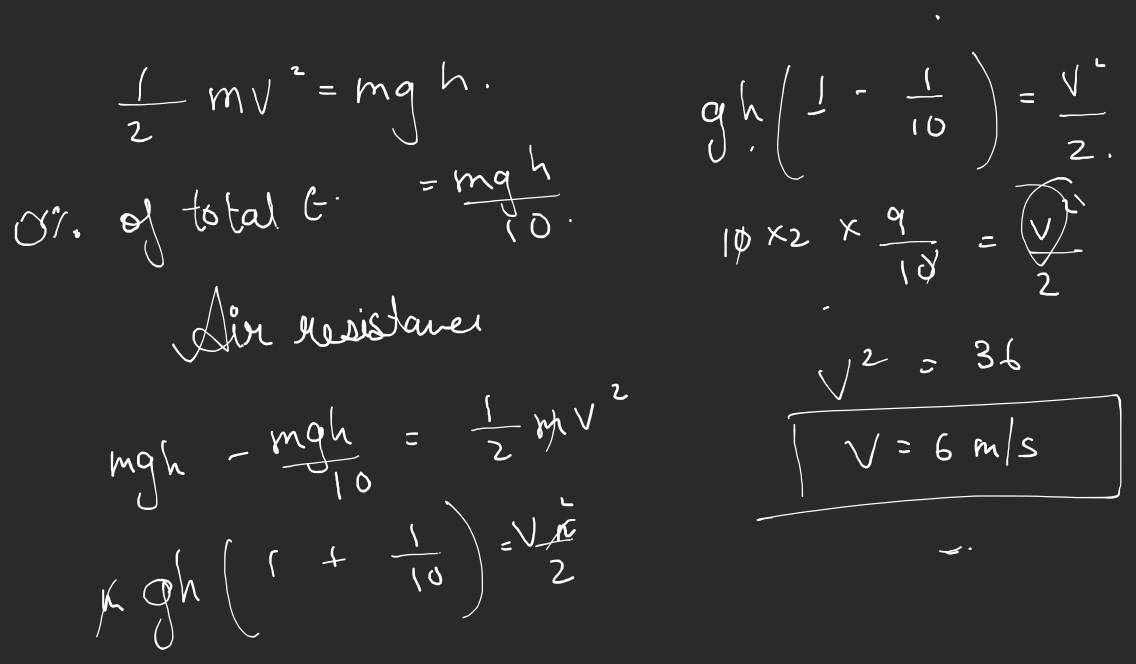 1/2 mv² = mgh.
0% of total E. = mgh/10.
Air resistance
mgh - mgh/10 = 1/2 mv²
mgh(1 + 1/10) = v²/2
gh(1 - 1/10) = v²/2.
10 x2 x 9/10 = v²/2
v² = 36
V = 6 m/s